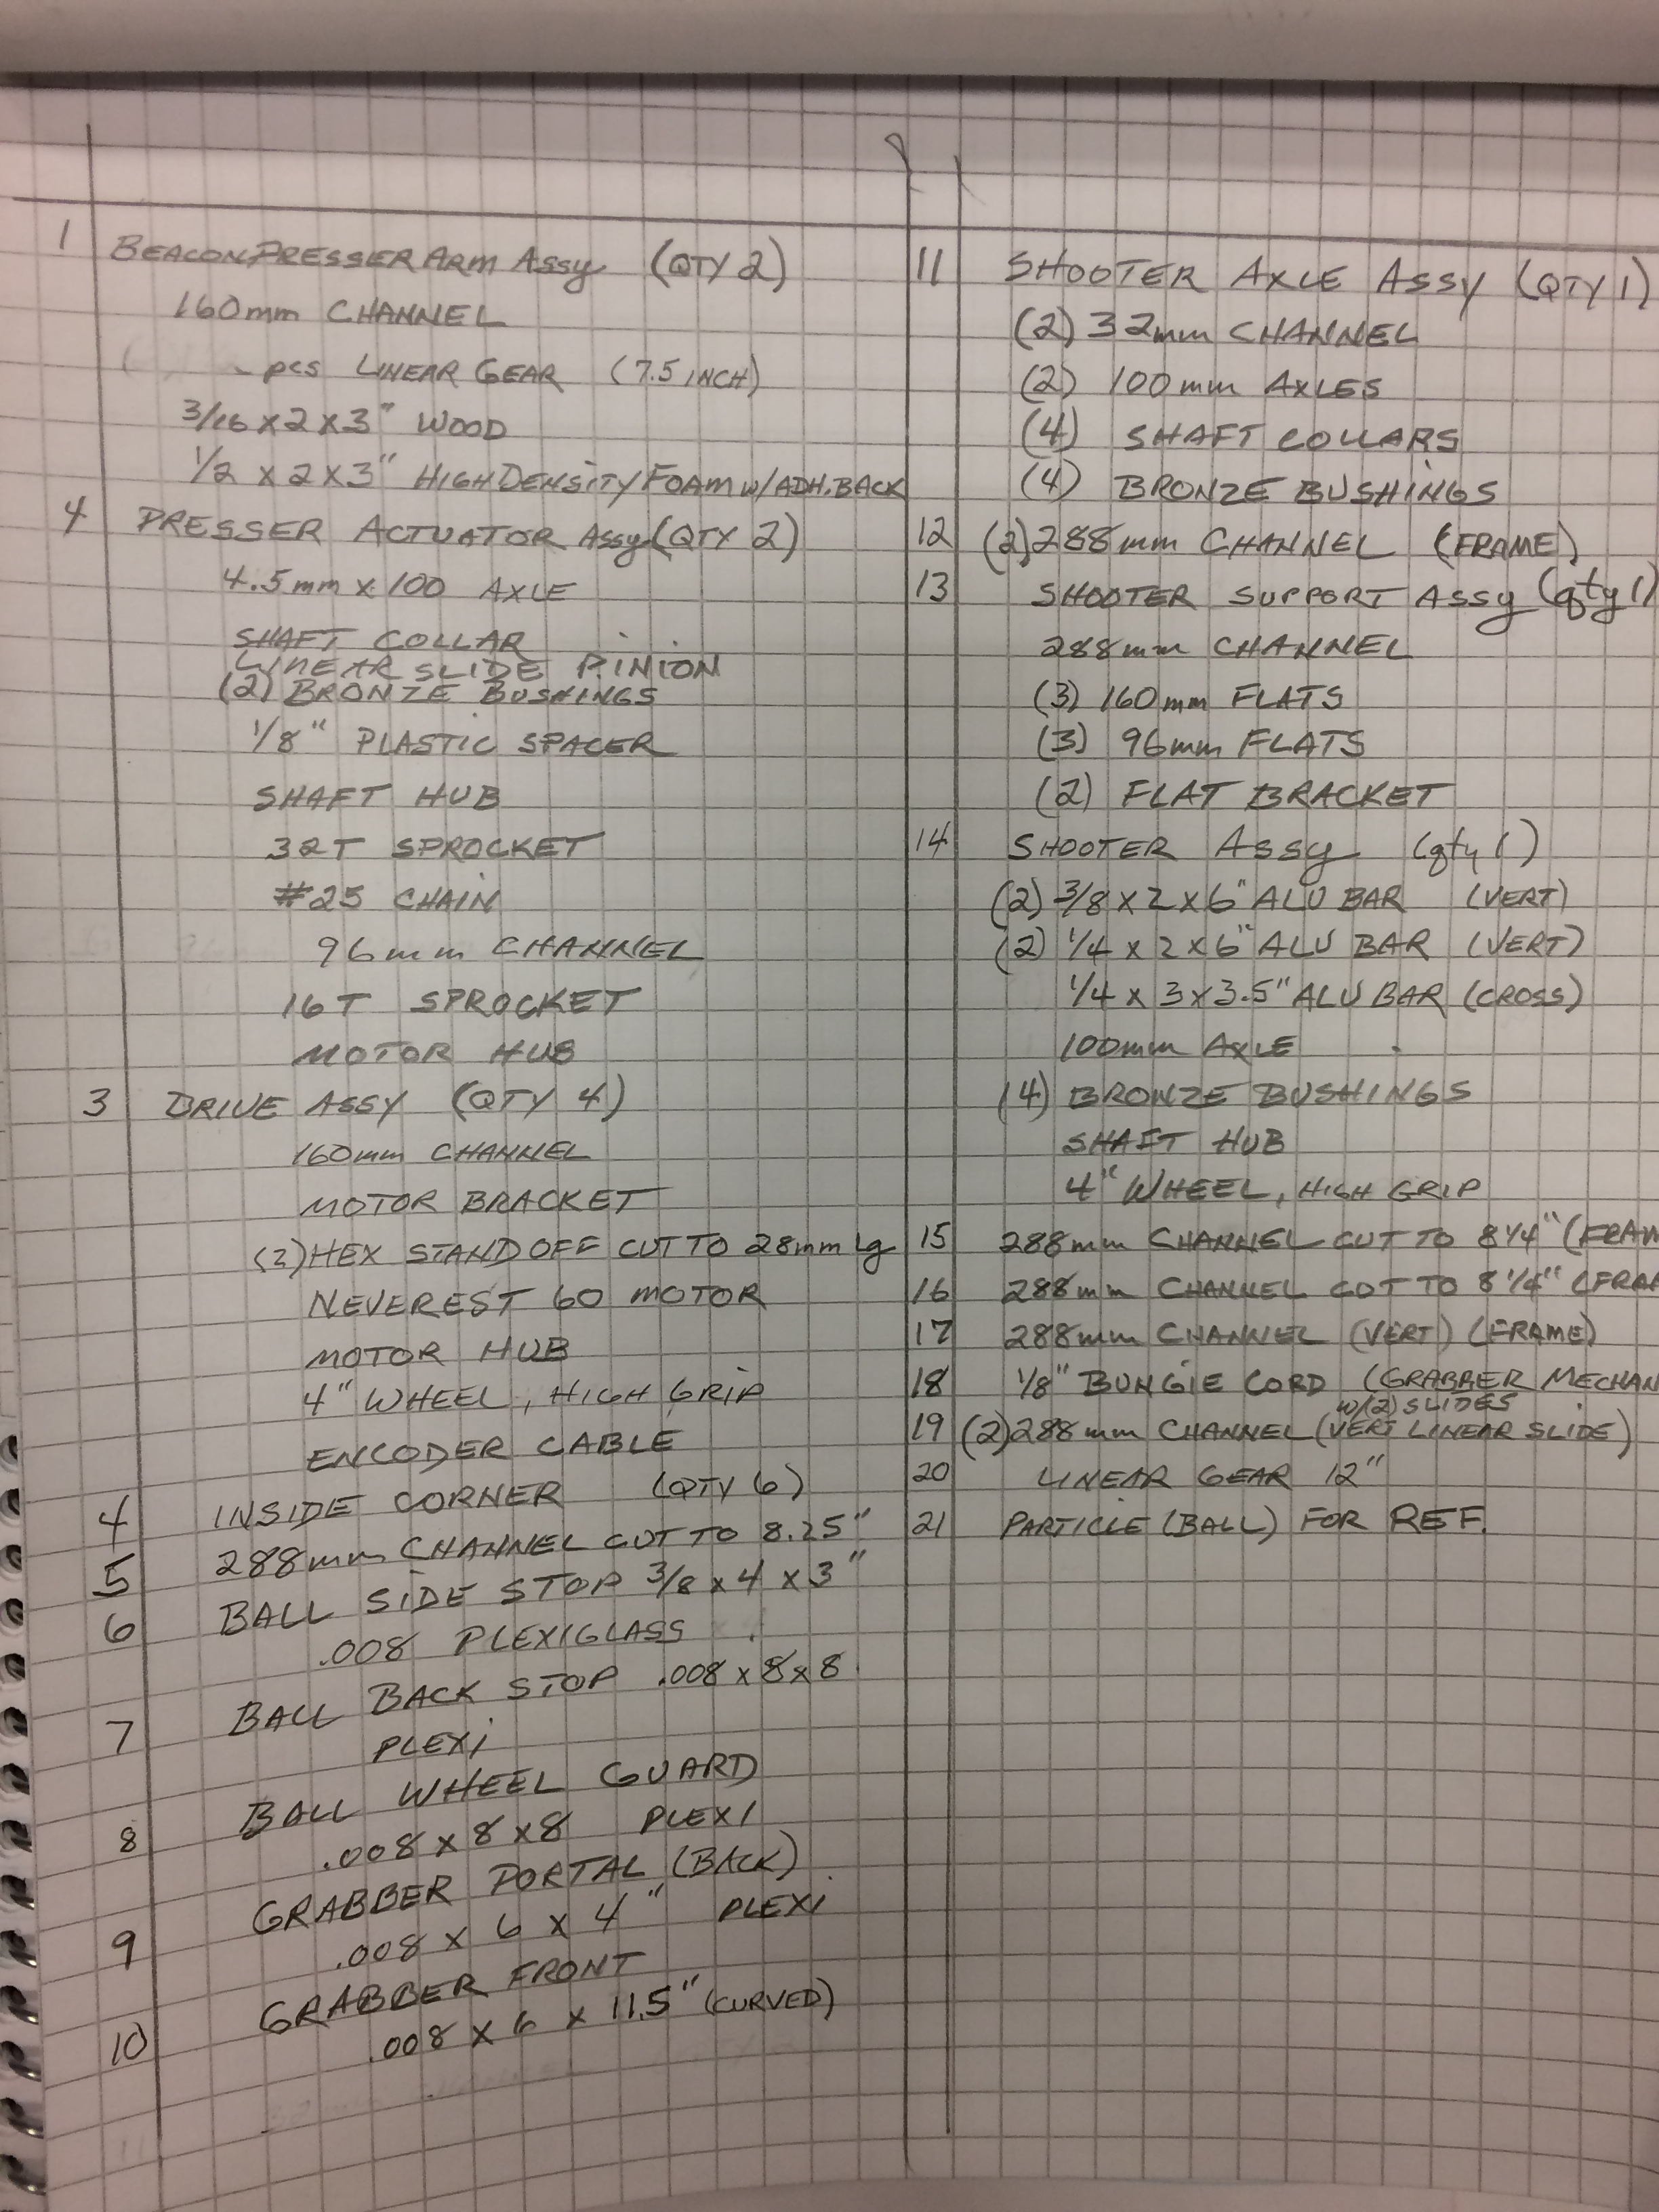 1 BEACON PRESSER ARM ASSY (QTY 2)
160mm CHANNEL
pcs LINEAR GEAR (7.5 INCH)
3/16 x 2 x 3" WOOD
1/2 x 2 x 3" HIGH DENSITY FOAM w/ADH. BACK
4 PRESSER ACTUATOR ASSY (QTY 2)
4.5mm x 100 AXLE
SHAFT COLLAR
LINEAR SLIDE PINION
(2) BRONZE BUSHINGS
1/8" PLASTIC SPACER
SHAFT HUB
32T SPROCKET
#25 CHAIN
96mm CHANNEL
16T SPROCKET
MOTOR HUB
3 DRIVE ASSY (QTY 4)
160mm CHANNEL
MOTOR BRACKET
(2) HEX STANDOFF CUT TO 28mm Lg
NEVEREST 60 MOTOR
MOTOR HUB
4" WHEEL, HIGH GRIP
ENCODER CABLE
4 INSIDE CORNER (QTY 6)
5 288mm CHANNEL CUT TO 8.25"
6 BALL SIDE STOP 3/8 x 4 x 3"
.008 PLEXIGLASS
7 BALL BACK STOP .008 x 8 x 8
PLEXI
8 BALL WHEEL GUARD
.008 x 8 x 8 PLEXI
9 GRABBER PORTAL (BACK)
.008 x 6 x 4" PLEXI
10 GRABBER FRONT
.008 x 6 x 11.5" (CURVED)
11 SHOOTER AXLE ASSY (QTY 1)
(2) 32mm CHANNEL
(2) 100mm AXLES
(4) SHAFT COLLARS
(4) BRONZE BUSHINGS
12 (2) 288mm CHANNEL (FRAME)
13 SHOOTER SUPPORT ASSY (qty 1)
288mm CHANNEL
(3) 160mm FLATS
(3) 96mm FLATS
(2) FLAT BRACKET
14 SHOOTER ASSY (qty 1)
(2) 3/8 x 2 x 6" ALU BAR (VERT)
(2) 1/4 x 2 x 6" ALU BAR (VERT)
1/4 x 3 x 3.5" ALU BAR (CROSS)
100mm AXLE
(4) BRONZE BUSHINGS
SHAFT HUB
4" WHEEL, HIGH GRIP
15 288mm CHANNEL CUT TO 8 1/4" (FRAM
16 288mm CHANNEL CUT TO 8 1/4" (FRA
17 288mm CHANNEL (VERT) (FRAME)
18 1/8" BUNGIE CORD (GRABBER MECHAN
w/(2) SLIDES
19 (2) 288mm CHANNEL (VERT LINEAR SLIDE)
20 LINEAR GEAR 12"
21 PARTICLE (BALL) FOR REF.